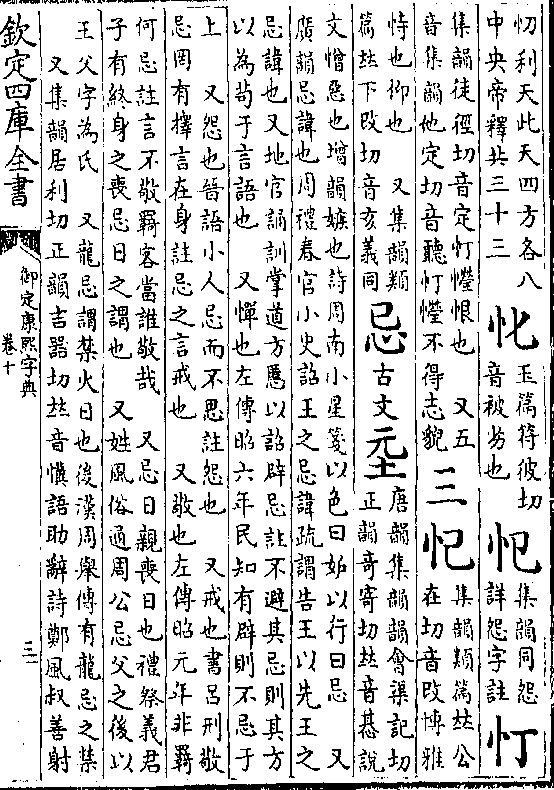 忉利天此天四方各八
中央帝釋共三十三
玉篇符彼切
音被劣也
集韻同怨
詳怨字註
忊
集韻徒徑切音定忊恨也　又五
音集韻他定切音聽忊不得志貌
三
忋
集韻類篇𠀤公
在切音改博雅
恃也仰也　又集韻類
篇𠀤下改切音亥義同
忌
古文
唐韻集韻韻會渠記切
正韻奇寄切𠀤音惎說
文憎惡也增韻嫉也詩周南小星箋以色曰妒以行曰忌　又
廣韻忌諱也周禮春官小史詔王之忌諱疏謂告王以先王之
忌諱也又地官誦訓掌道方慝以詔辟忌註不避其忌則其方
以為苟于言語也　又憚也左傳昭六年民知有辟則不忌于
上　又怨也晉語小人忌而不思註怨也　又戒也書呂刑敬
忌罔有擇言在身註忌之言戒也　又敬也左傳昭元年非羇
何忌註言不敬羇客當誰敬哉　又忌日親喪日也禮祭義君
子有終身之喪忌日之謂也　又姓風俗通周公忌父之後以
王父字為氏　又龍忌謂禁火日也後漢周舉傳有龍忌之禁
又集韻居利切正韻吉器切𠀤音懻語助辭詩鄭風叔善射
欽定四庫全書
御定康熙字典
卷十
三